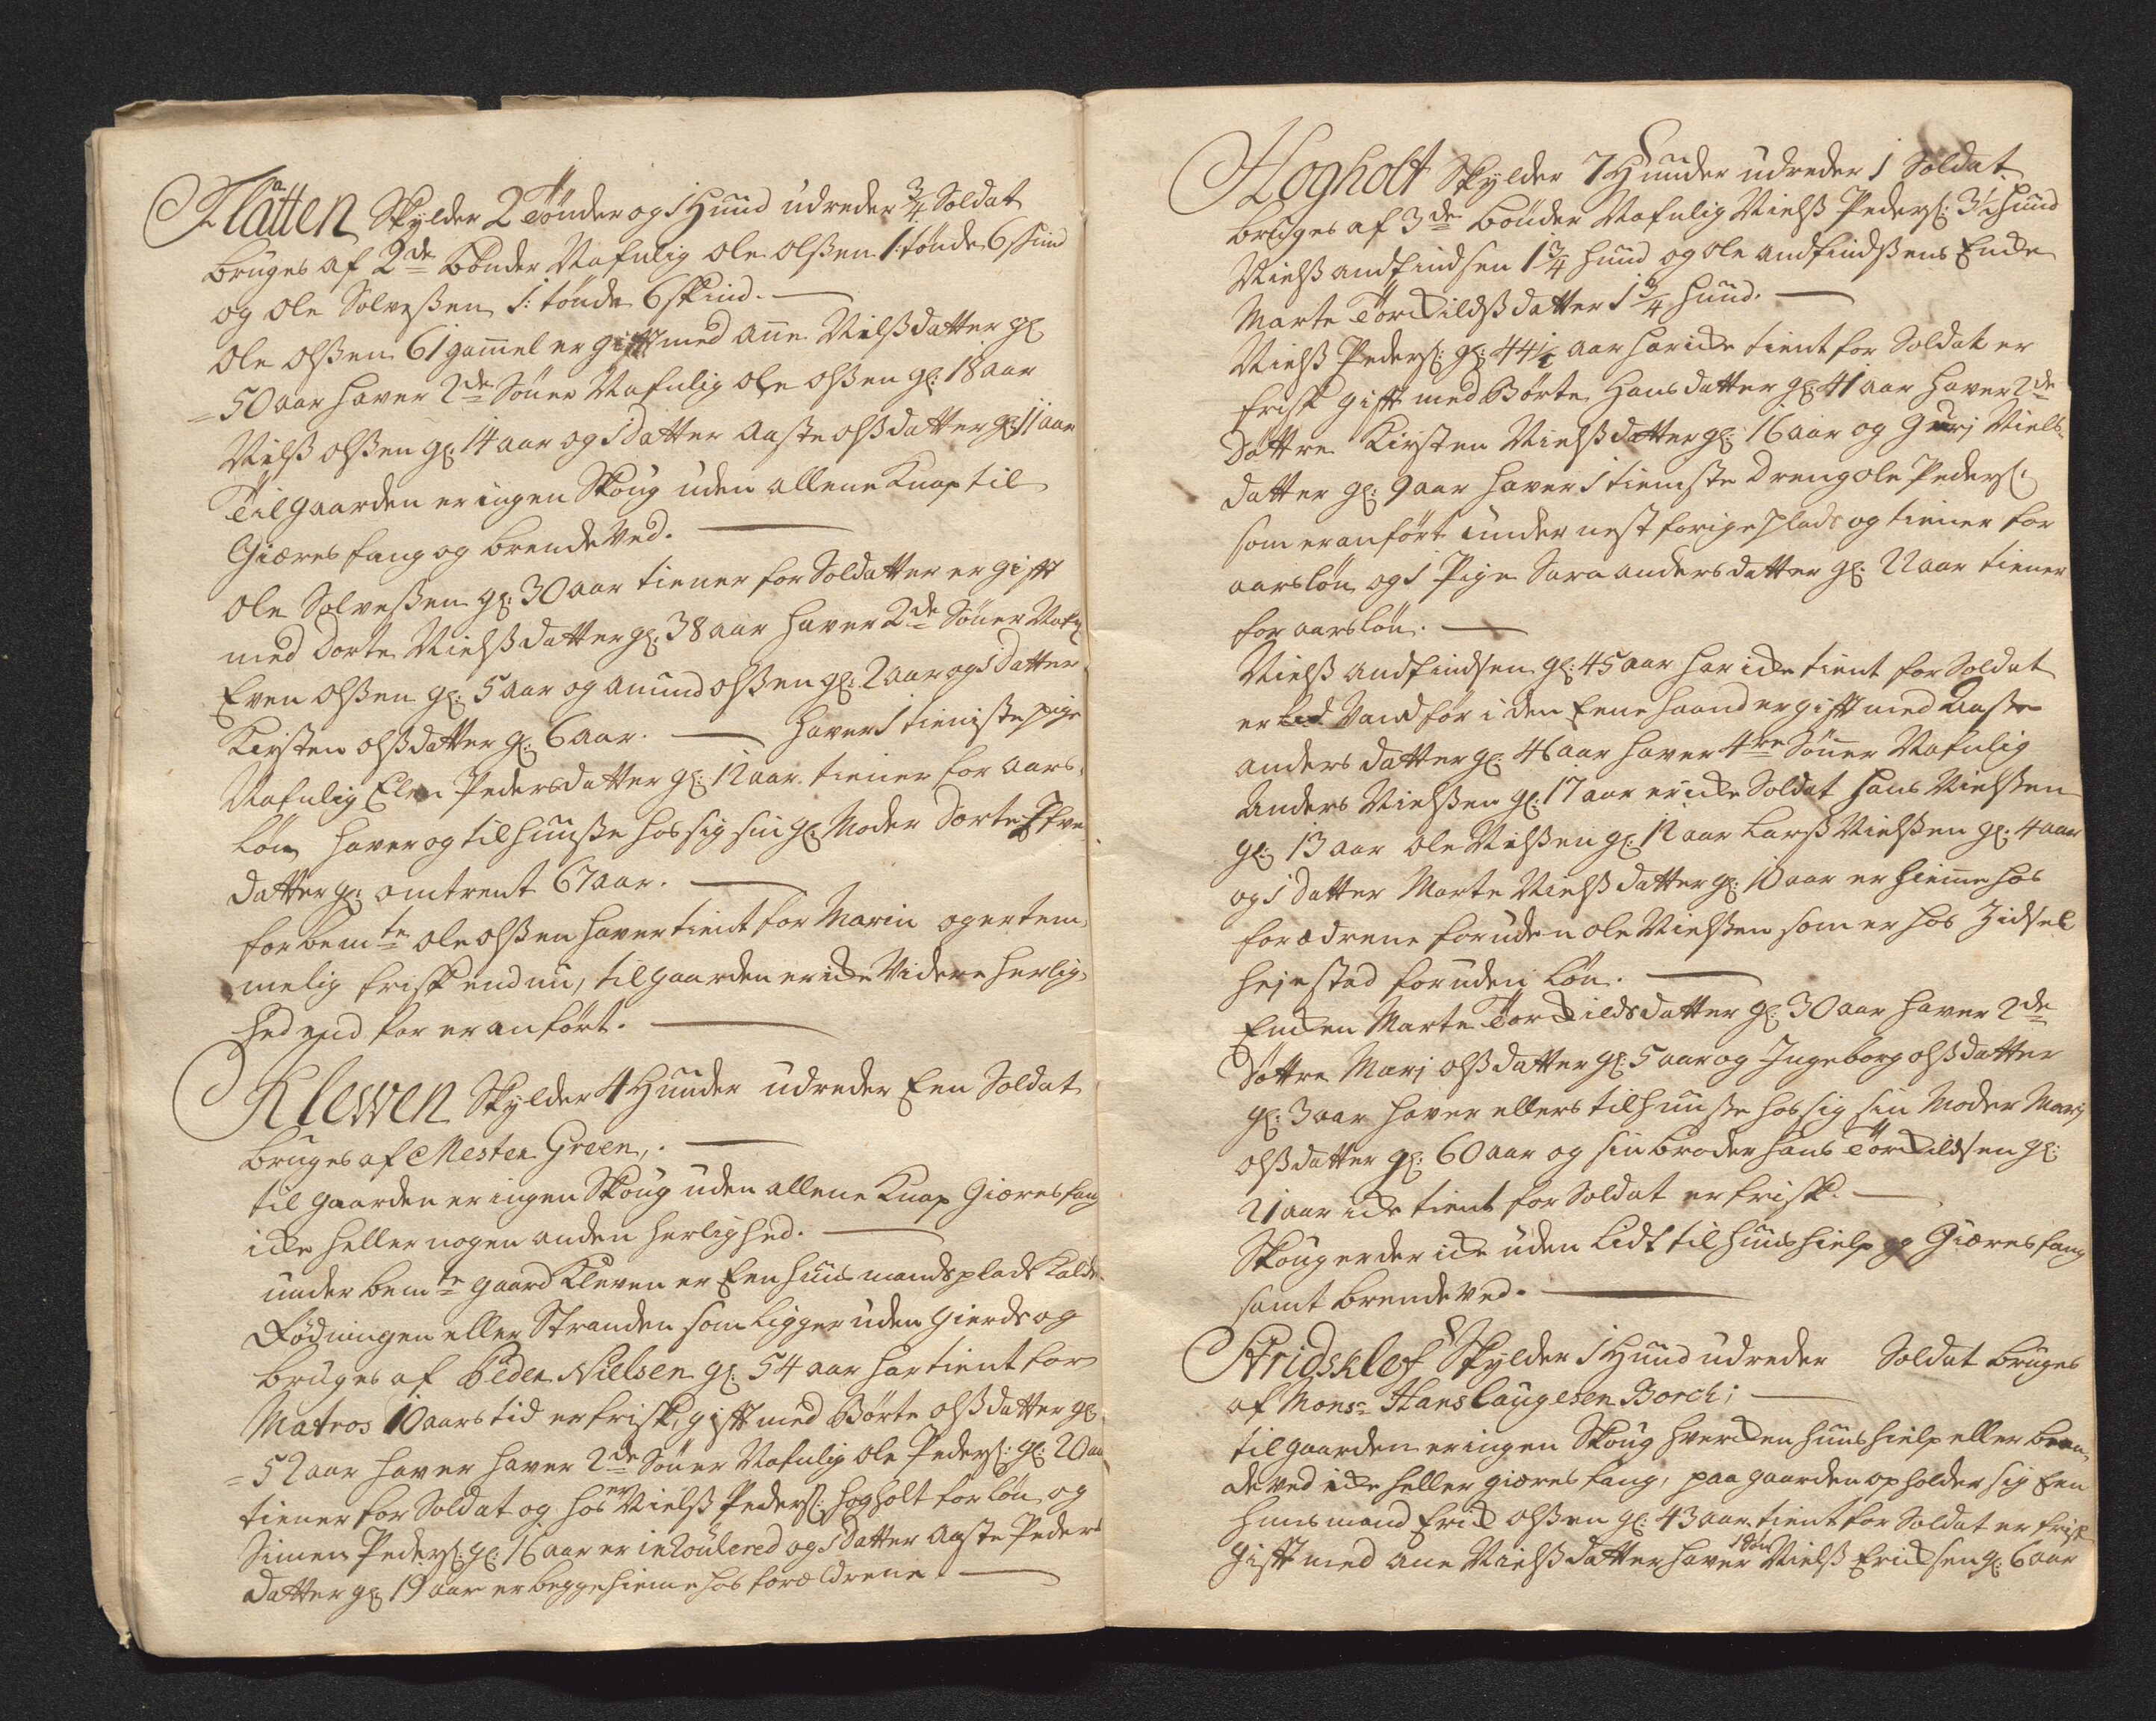 Flåtten Skylder 2 Tönder og 1 Huud udreder 3/4 Soldat
bruges af 2de bönder Nafnlig Ole Olssen 1: tönde 6 skind
og Ole Solvessen 1: tönde 6 skind.
Ole Olssen 61 gammel er gifft med Anne Nielssdatter gl:
50 aar haver 2de Sönner Nafnlig Ole Olssen gl: 18 aar
Nielss Olssen gl: 14 aar og 1 datter Aaste Olssdatter gl: 11 aar
Til gaarden er ingen Skoug uden allene Knap til
Giæresfang og brendeved.
Ole Solvessen gl: 30 aar tiener for Soldatter er gifft
med Dorte Nielssdatter gl: 38 aar haver 2de Sönner Nafl:
Even Olssen gl: 5 aar og Anund Olssen gl: 2 aar og 1 datter
Kirsten Olssdatter gl: 6 aar. haver 1 tieniste pige
Nafnlig Elen Pedersdatter gl: 12 aar tiener for aars-
lön haver og til huusse hos sig sin gl: Moder Dorte
datter gl: omtrent 67 aar.
forbemte Ole Olssen haver tient for Marin og er tem-
melig frisk endnu, til gaarden er icke Videre herlig-
hed end for er anfört.
Klewen Skylder 4 Huuder udreder Een Soldat
bruges af Mester Green,.
til gaarden er ingen Skoug uden allene Knap Giæresfang
icke heller nogen anden herlighed.
under bemte gaard Kleven er Een huusmandsplads Kaldes
Födningen eller Stranden som ligger uden gierds og
bruges af Peder Nielsen gl: 54 aar har tient for
Matros 10 aars tid er frisk, gifft med Börte Olssdatter gl:
52 aar haver haver 2de Sönner Nafnlig Ole Peders: gl: 20 aar
tiener for Soldat og er hos Nielss Peders: Hogholt for lön og
Simen Peders: gl: 16 aar er inRoulered og 1 datter Aaste Peders
datter gl: 19 aar er begge hieme hos forældrene.
Hogholt Skylder 7 Huuder udreder 1 Soldat
bruges af 3de bönder Nafnlig Nielss Peders: 3 1/2 huud
Nielss Andfindsen 1 3/4 huud og Ole Andfindssens Encke
Marte Törckildssdatter 1 3/4 huud.
Nielss Peders: gl: 44 1/2 aar har icke tient for Soldat er
frisk gifft med Börte Hansdatter gl: 41 aar haver 2de
döttre Kirsten Nielssdatter gl: 16 aar og Gurj Niels-
datter gl: 9 aar haver 1 tieniste dreng Ole Peders:
som er anfört under nest forige plads og tiener for
aarslön og 1 Pige Sara Andersdatter gl: 22 aar tiener
for aarslön.
Nielss Andfindsen gl: 45 aar har icke tient for Soldat
er Vandför i den Eene haand er gifft med Aaste
Andersdatter gl: 46 aar haver 4re Sönner Nafnlig
Anders Nielssen gl: 17 aar er icke Soldat Hans Nielssen
gl: 13 aar Ole Nielssen gl: 12 aar Larss Nielssen gl: 4 aar
og 1 datter Marte Nielssdatter gl: 10 aar er hieme hos
forældrene foruden Ole Nielssen som er hos Zidsel
Hejestad foruden lön.
Encken Marte Torckildsdatter gl: 30 aar haver 2de
döttre Marj Olssdatter gl: 5 aar og Jngeborg Olssdatter
gl: 3 aar haver ellers til huusse hos sig sin Moder Marj
Olssdatter gl: 60 aar og sin broder Hans Törckildsen gl:
21 aar icke tient for Soldat er frisk.
Skoug er der icke uden lidt til huushielp og Giæresfang
samt brendeved.
Stridsklef Skylder 1 Huud udreder Soldat bruges
af Monsr Hans Laugesen Borch;
til gaarden er ingen Skoug hvercken huushielp eller bren-
deved icke heller giæresfang, paa gaarden opholder sig Een
huusmand Erick Olssen gl: 43 aar tient for Soldat er frisk
gifft med Ane Nielssdatter haver 1 sön Nielss Ericksen gl: 6 aar